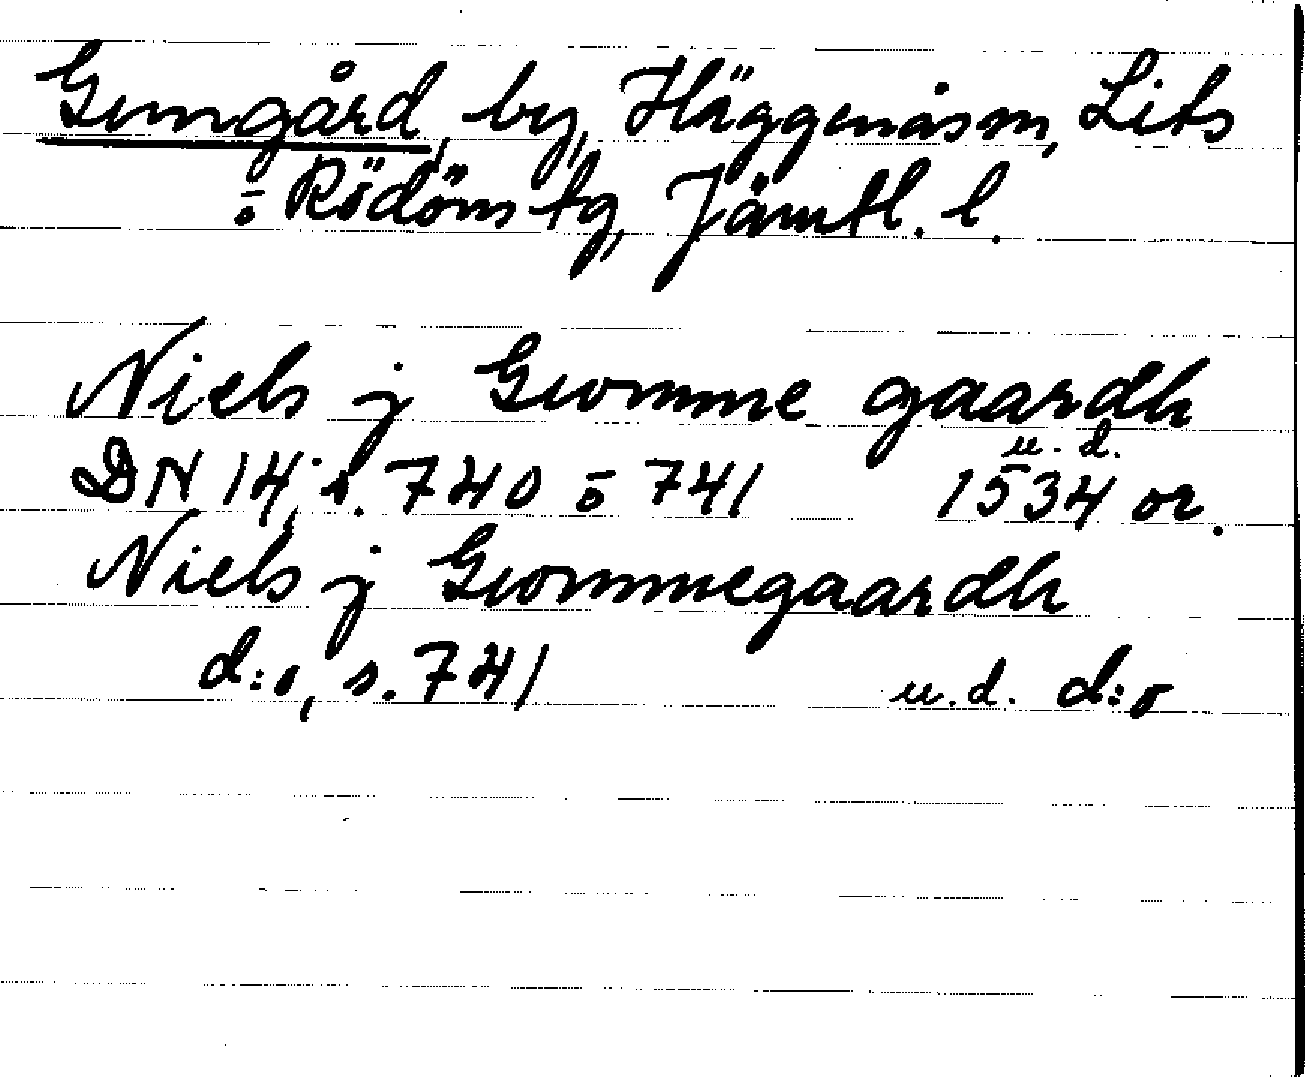 Gumgård, by, Häggenås sn, Lits
ō Rödöns tg, Jämtl. l.
Niels j Gwomme gaardh
DN 14, s. 740 ō 741 u. d. 1534 or.
Niels j Gwommegaardh
d:o, s. 741 u.d. d:o